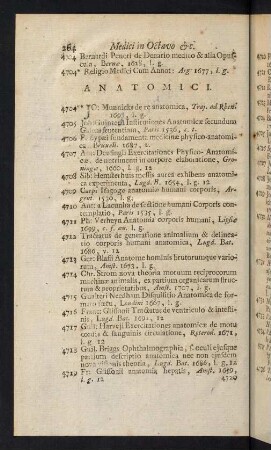 264 Medici in Octavo &c.
4704* Religio Medici Cum Annot: Arg 1677, l. g.
ANATOMICI.
4704**
re anatomica, Traj. ad Rhen:
1697, l. g.
4705
Institutiones Anatomicæ secundum
Galeni sententiam, Paris 1536, c. t.
4706
fundament: medicinæ physico-anatomi-
ca Bruxell. 1687, l.
4707
Exercitationes Physico-Anatomi-
cæ de nutrimenti in corpore elaboratione, Gro-
ningæ, 1660, l. g. 12
4708 Sibi Hemsterhuis messis aurea exhibens anatomi-
ca experimenta, Lugd. B. 1654, l. g. 12
4709
anatomiæ humani corporis, Ar-
gent. 1536, l. g.
4710
de sectione humani Corporis con-
templatio, Paris 1535, l. g.
4711 Ph: Verheyn Anatomia corporis humani, Lipsiæ
1699, c. f. au. l. g.
4712 Tractatus de generatione animalium & delinea-
tio corporis humani anatomica, Lugd. Bat.
1686, v. 12
4713 Ger: Blasii Anatome hominis brutorumque vario-
rum, Amst. 1673, l. g.
4714 Chr. Strom nova theoria motuum reciprocorum
machinæ animalis, ex partium organicarum struc-
tura & proprietatibus, Amst. 1707, l. g.
4715 Gualteri Needham Disquisitio Anatomica de for-
mato fœtu, Londini 1667, l. g.
4716 Franc: Glissonii Tractatus de ventriculo & intesti-
nis, Lugd. Bat. 1691, 12
4717 Guil: Harveji Exercitationes anatomicæ de motu
cordis & sanguinis circulatione, Roterod. 1671,
l. g. 12
4718 Guil. Briggs Ophthalmographia, s. oculi ejusque
partium descriptio anatomica nec non ejusdem
nova visionis theoria, Lugd. Bat. 1686, l. g. 12
4719 Fr: Glissonii anatomia hepatis, Amst. 1659,
l. g. 12
4720